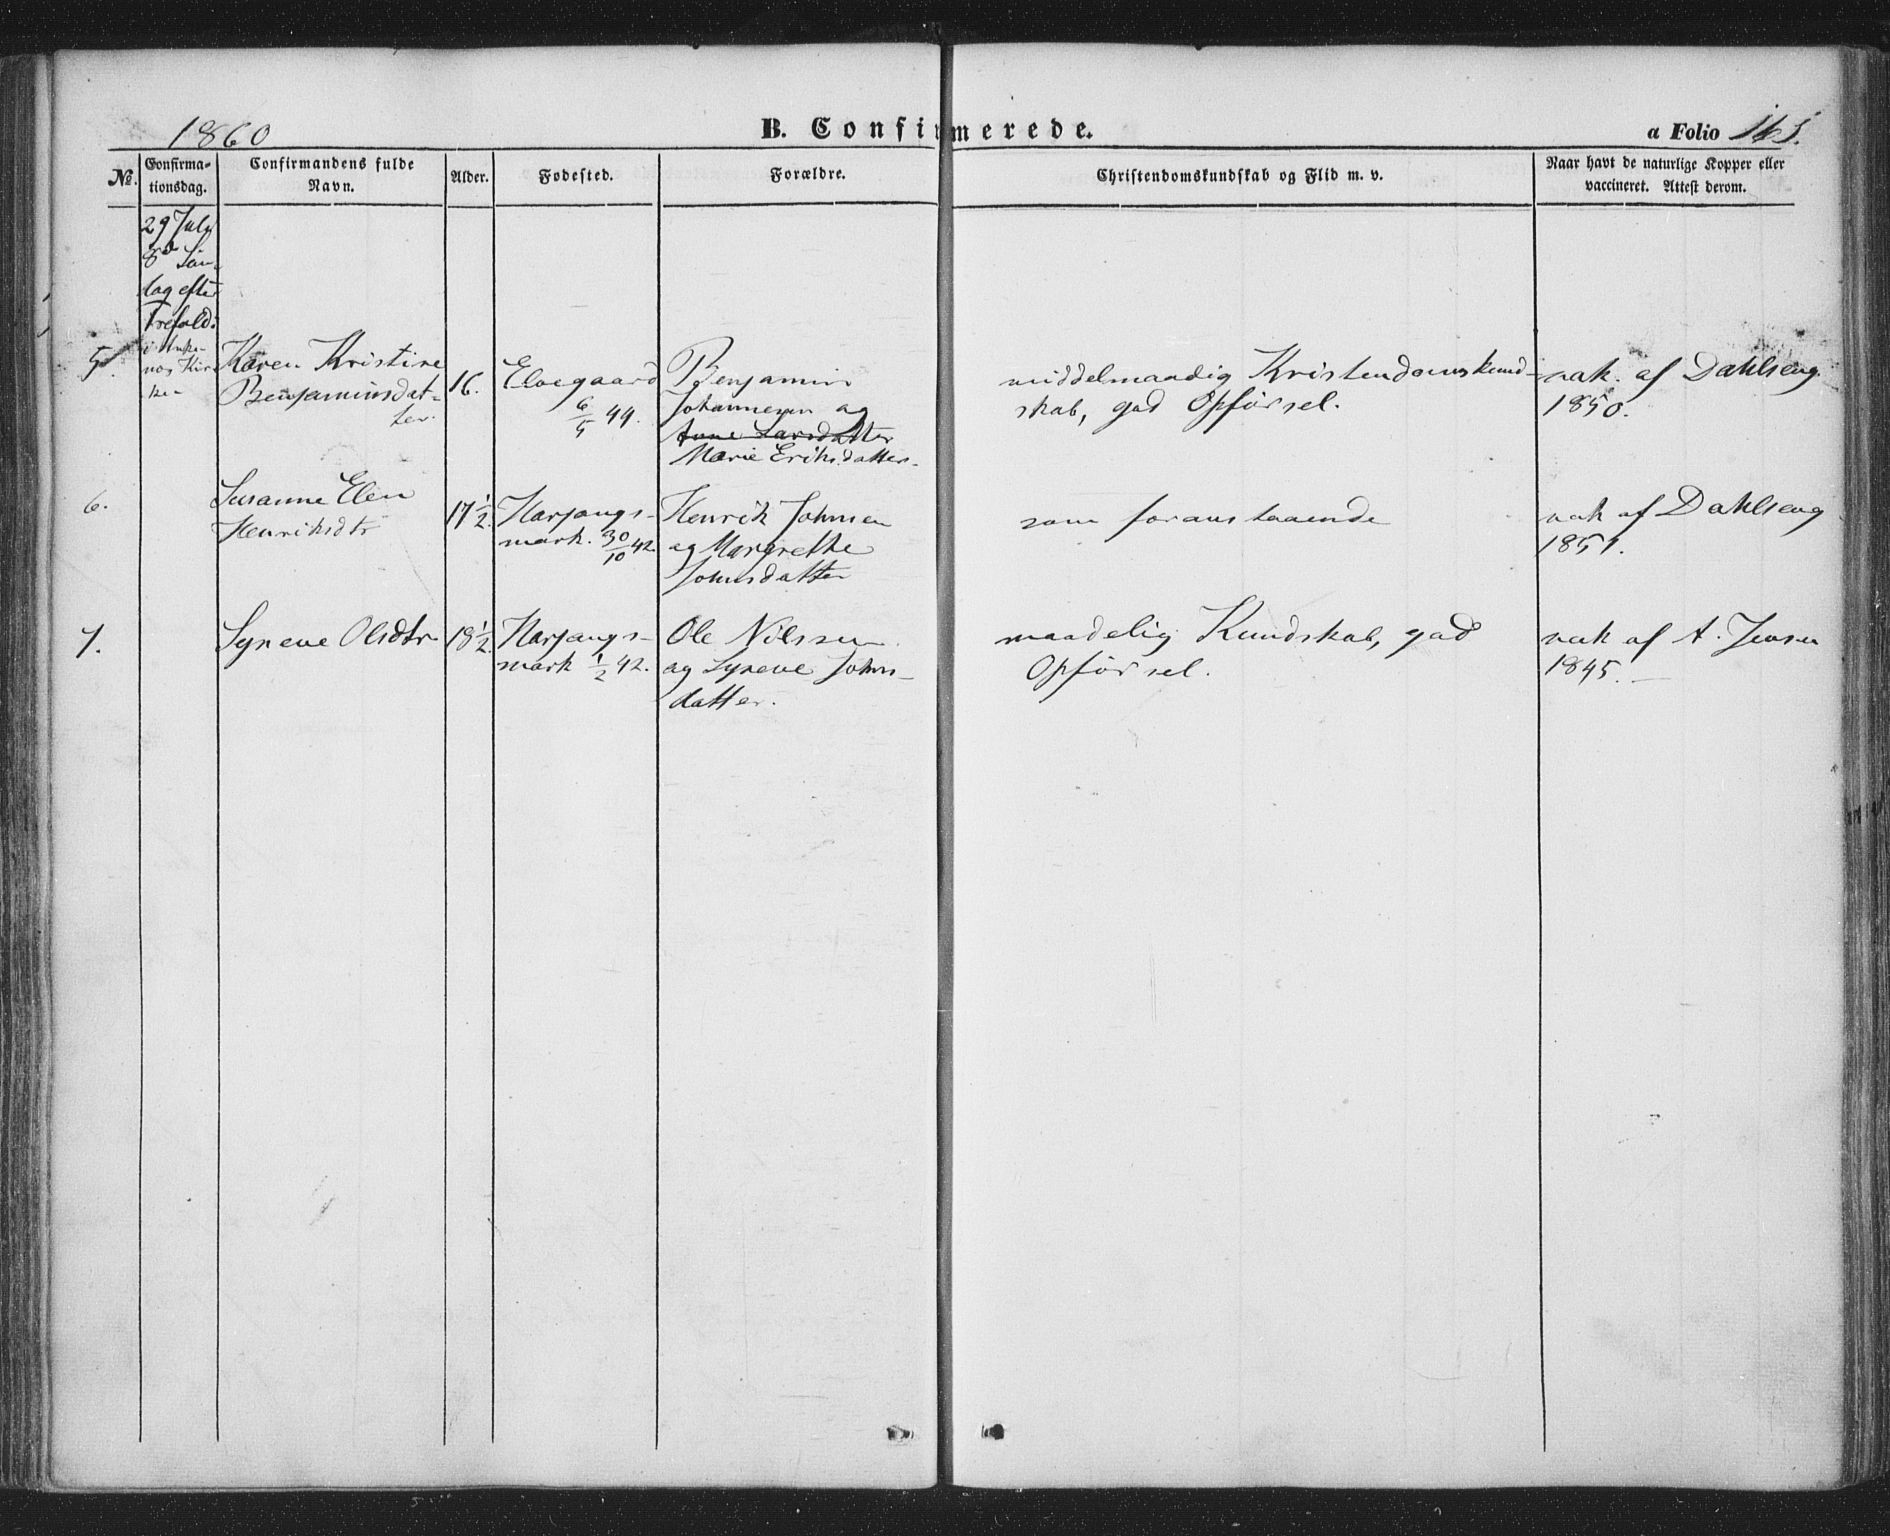 1860
B. Confirmerede.
a Folio 165.
№.
Confirma-
tionsdag.
Confirmandens fulde
Navn.
Alder.
Fødested.
Forældre.
Christendomskundskab og Flid m. v.
Naar havt de naturlige Kopper eller
vaccineret. Attest derom.
29 Juli
8d Søn-
dag efter
Trefold:
i Anke-
nos Kir
ken
5.
Karen Kristine
Benjaminsdat-
ter.
16.
Elvegaard
6/5 44.
Benjamin
Johannesen og
Anne Larsdatter
Marie Eriksdatter.
middelmaadig Kristendomskund-
skab, god Opførsel.
vak. af Dahlseng
1850.
6.
Susanne Elen
Henriksdtr
17 1/2
Harjangs-
mark. 30/10 42
Henrik Johnsen
og Margrethe
Johnsdatter
som foranstaaende
vak af Dahlseng
1851.
7.
Syneve Olsdtr
18 1/2
Harjangs-
mark 1/2 42.
Ole Nilssen
og Syneve Johns-
datter.
maadelig Kundskab, god
Opførsel.
vak af A. Jensen
1845.